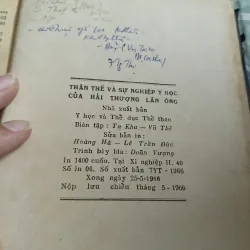 THÂN THẾ VÀ SỰ NGHIỆP Y HỌC
CỦA HẢI THƯỢNG LÃN ÔNG
Nhà xuất bản
Y học và Thể dục Thể thao
Biên tập: Tạ Kha — Vũ Thế
Sửa bản in:
Hoàng Hà — Lê Trần Đức
Trình bày bìa: Doãn Tượng
In 1400 cuốn. Tại Xí nghiệp II. 40
Số in 06. Số xuất bản 7YT-1966
Xong ngày 25-5-1966
Nộp lưu chiểu tháng 5-1966